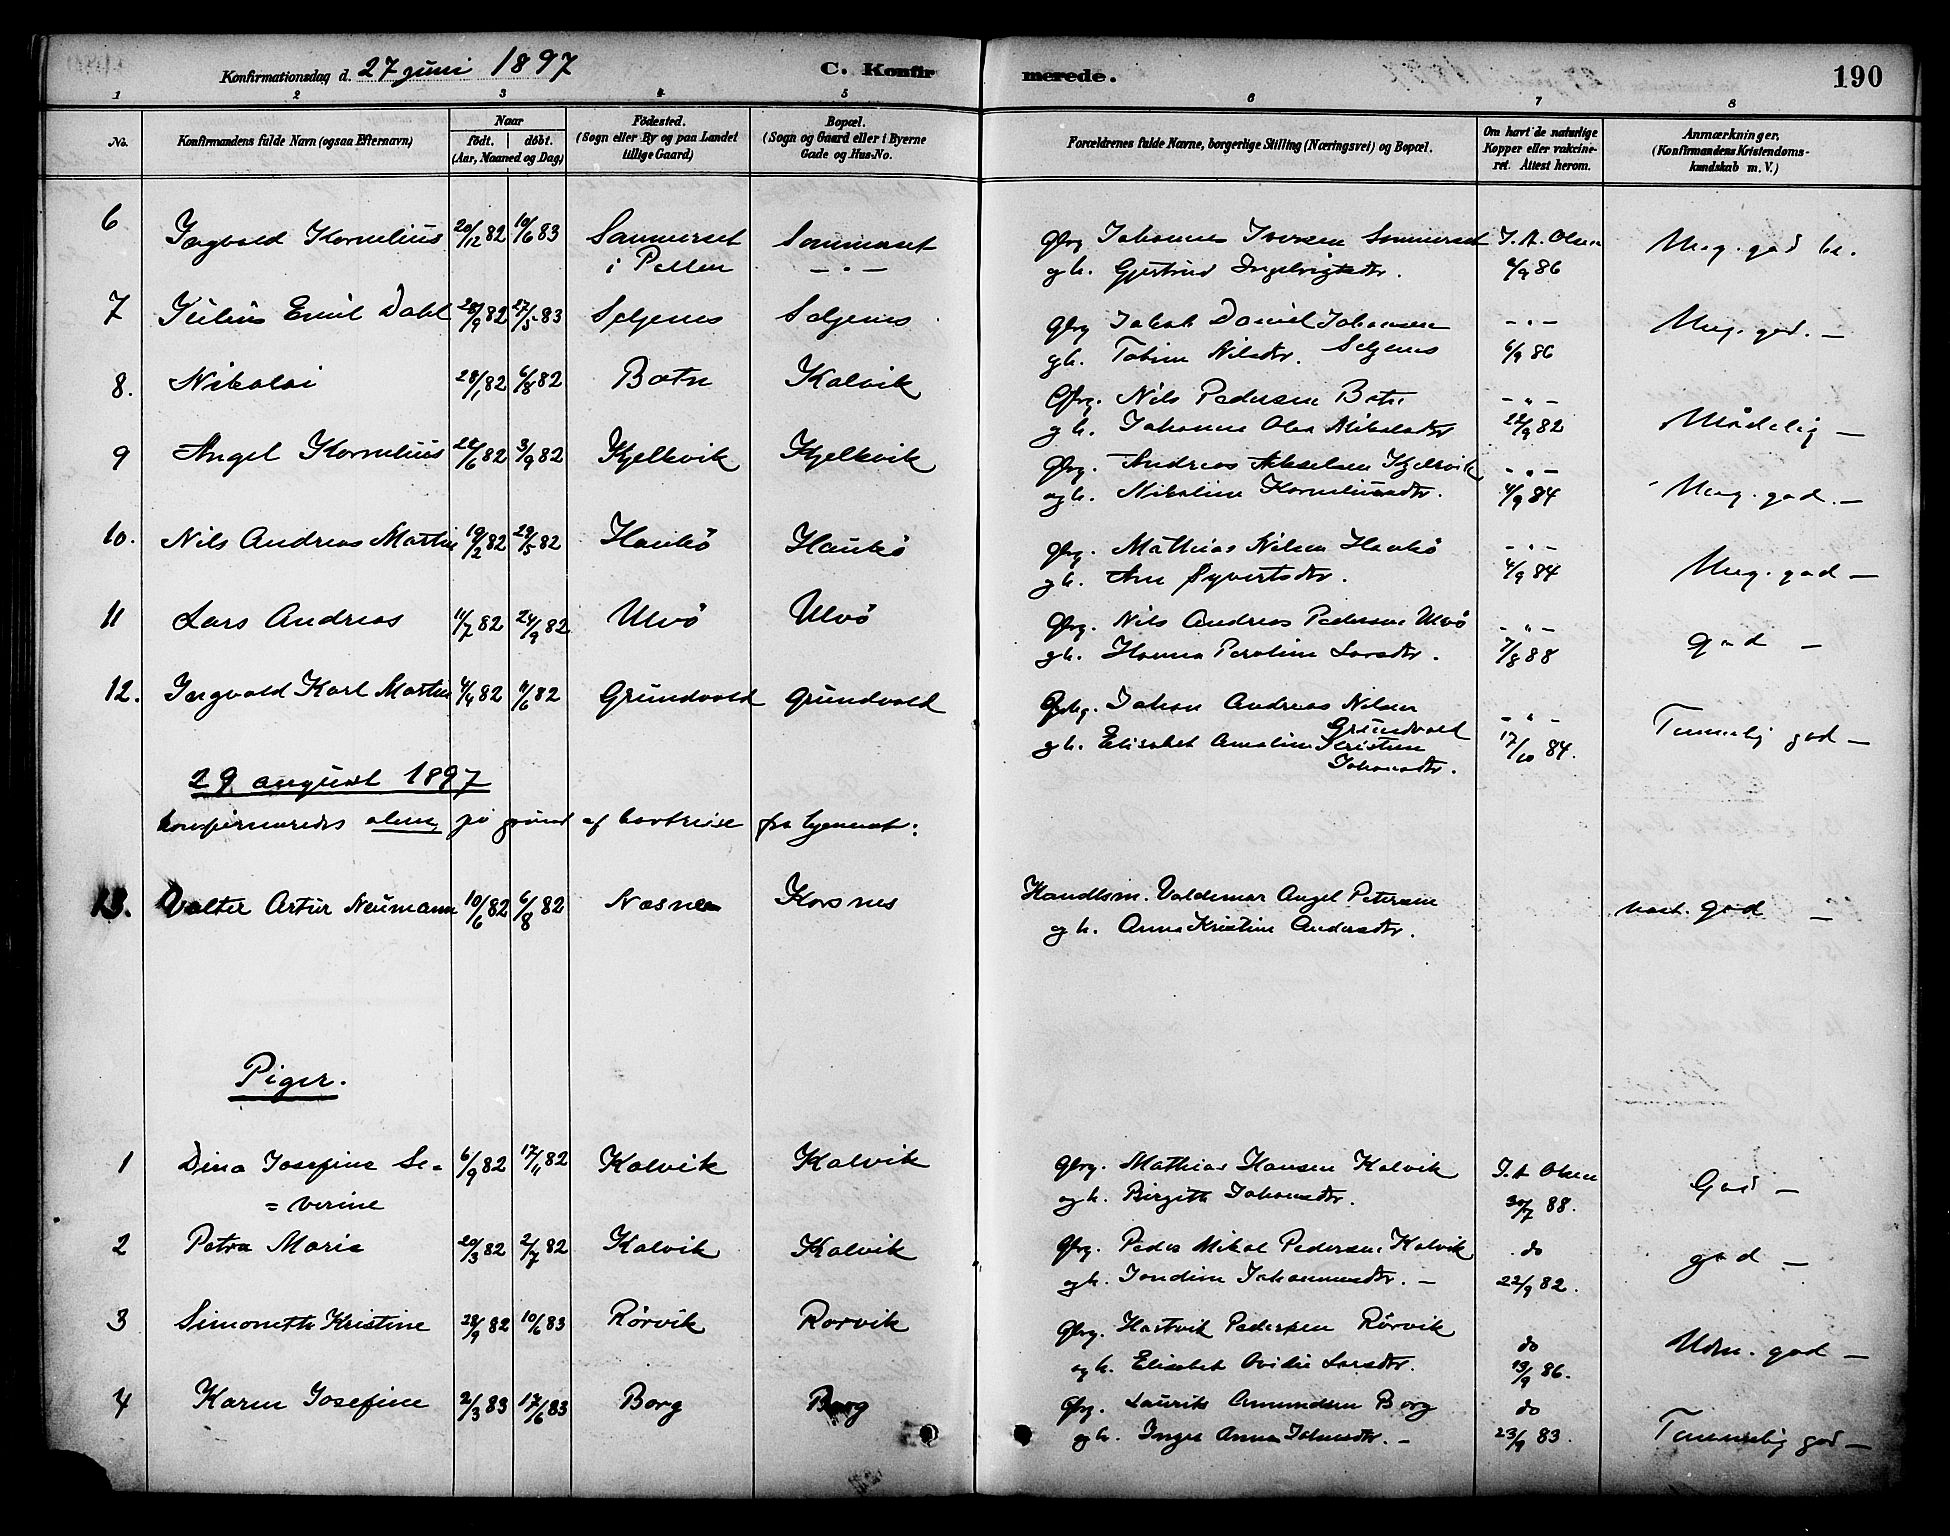 Konfirmationsdag d. 27 juni 1897 C. Konfirmerede. 190
1 2 3 4 5 6 7 8
No. Konfirmandens fulde Navn (ogsaa Efternavn) Naar født. døbt. (Aar, Maaned og Dag) Fødested. (Sogn eller By og paa Landet tillige Gaard) Bopæl. (Sogn og Gaard eller i Byerne Gade og Hus-No. Forældrenes fulde Navne, borgerlige Stilling (Næringsvei) og Bopæl. Om havt de naturlige Kopper eller vakcineret. Attest herom. Anmærkninger. (Konfirmandens Kristendomskundskab m. V.)
6 Ingvald Kornelius 20/12 82 10/6 83 Sommerset Sommerset Gbrg Johannes Iversen Sommerset J. A. Olsen Meg. god
i Pollen – " – og h. Gjertrud Ingebrigtsdtr. 4/9 86
7 Julius Emil Dahl 28/9 82 27/5 83 Seljenes Seljenes Gbrg Jakob Daniel Johansen – " – Meg. god. –
gh. Tobine Nilsdtr. Seljenes 6/9 86
8. Nikolai 28/1 82 6/8 82 Botn Kalvik Gbrg. Nils Pedersen Botn – " – Mådelig –
og h. Johanna Olea Mikalsdtr 22/9 82
9 Angel Kornelius 24/6 82 3/9 82 Kjelkvik Kjelkvik Gbrg. Andreas Akselsen Kjelkvik – " – Meg. god. –
og h. Nikoline Korneliusdtr. 4/9 84
10. Nils Andreas Martin 19/2 82 29/5 82 Haukø Haukø Gbrg. Mathias Nilsen Haukø – " – Meg. god –
gh. Ane Syvertsdtr. 4/9 84
11 Lars Andreas 11/7 82 24/9 82 Ulvø Ulvø Gbrg. Nils Andreas Pedersen Ulvø – " – god –
gh. Hanna Peroline Larsdtr. 7/8 88
12. Ingvald Karl Martin 4/4 82 11/6 82 Grundvold Grundvold Gbrg. Johan Andreas Nilsen – " – Temmelig god –
Grundvold
og h. Elisabet Amaline Kristine 17/10 84.
Johansdtr.
29 august 1897
konfirmeredes alene på grund af bortreise fra hjemmet:
13. Valter Artur Neumann 10/6 82 6/8 82 Næsnes Korsnes Handlsm. Valdemar Angel Petersen god –
og h. Anna Kristine Andersdtr.
Piger.
1 Dina Josefine Se= 6/9 82 17/11 82 Kalvik Kalvik Gbrg. Mathias Hansen Kalvik J. A Olsen God –
= verine og h. Birgitte Johansdtr. 30/7 88.
2 Petra Marie 20/3 82 2/7 82 Kalvik Kalvik Gbrg. Peder Mikal Pedersen Kalvik do god –
og h. Jondine Johannesdtr. – 22/9 82.
3 Simonette Kristine 28/9 82 10/6 83 Rørvik Rørvik Gbrg. Hartvik Pedersen Rørvik do Udm. god –
og h. Elisabet Ovidie Larsdtr. 13/9 86.
4 Karen Josefine 2/3 83 17/6 83 Borg Borg Gbrg. Laurits Amundsen Borg do Temmelig god –
og h. Inger Anna Johnsdtr. – 23/9 83.